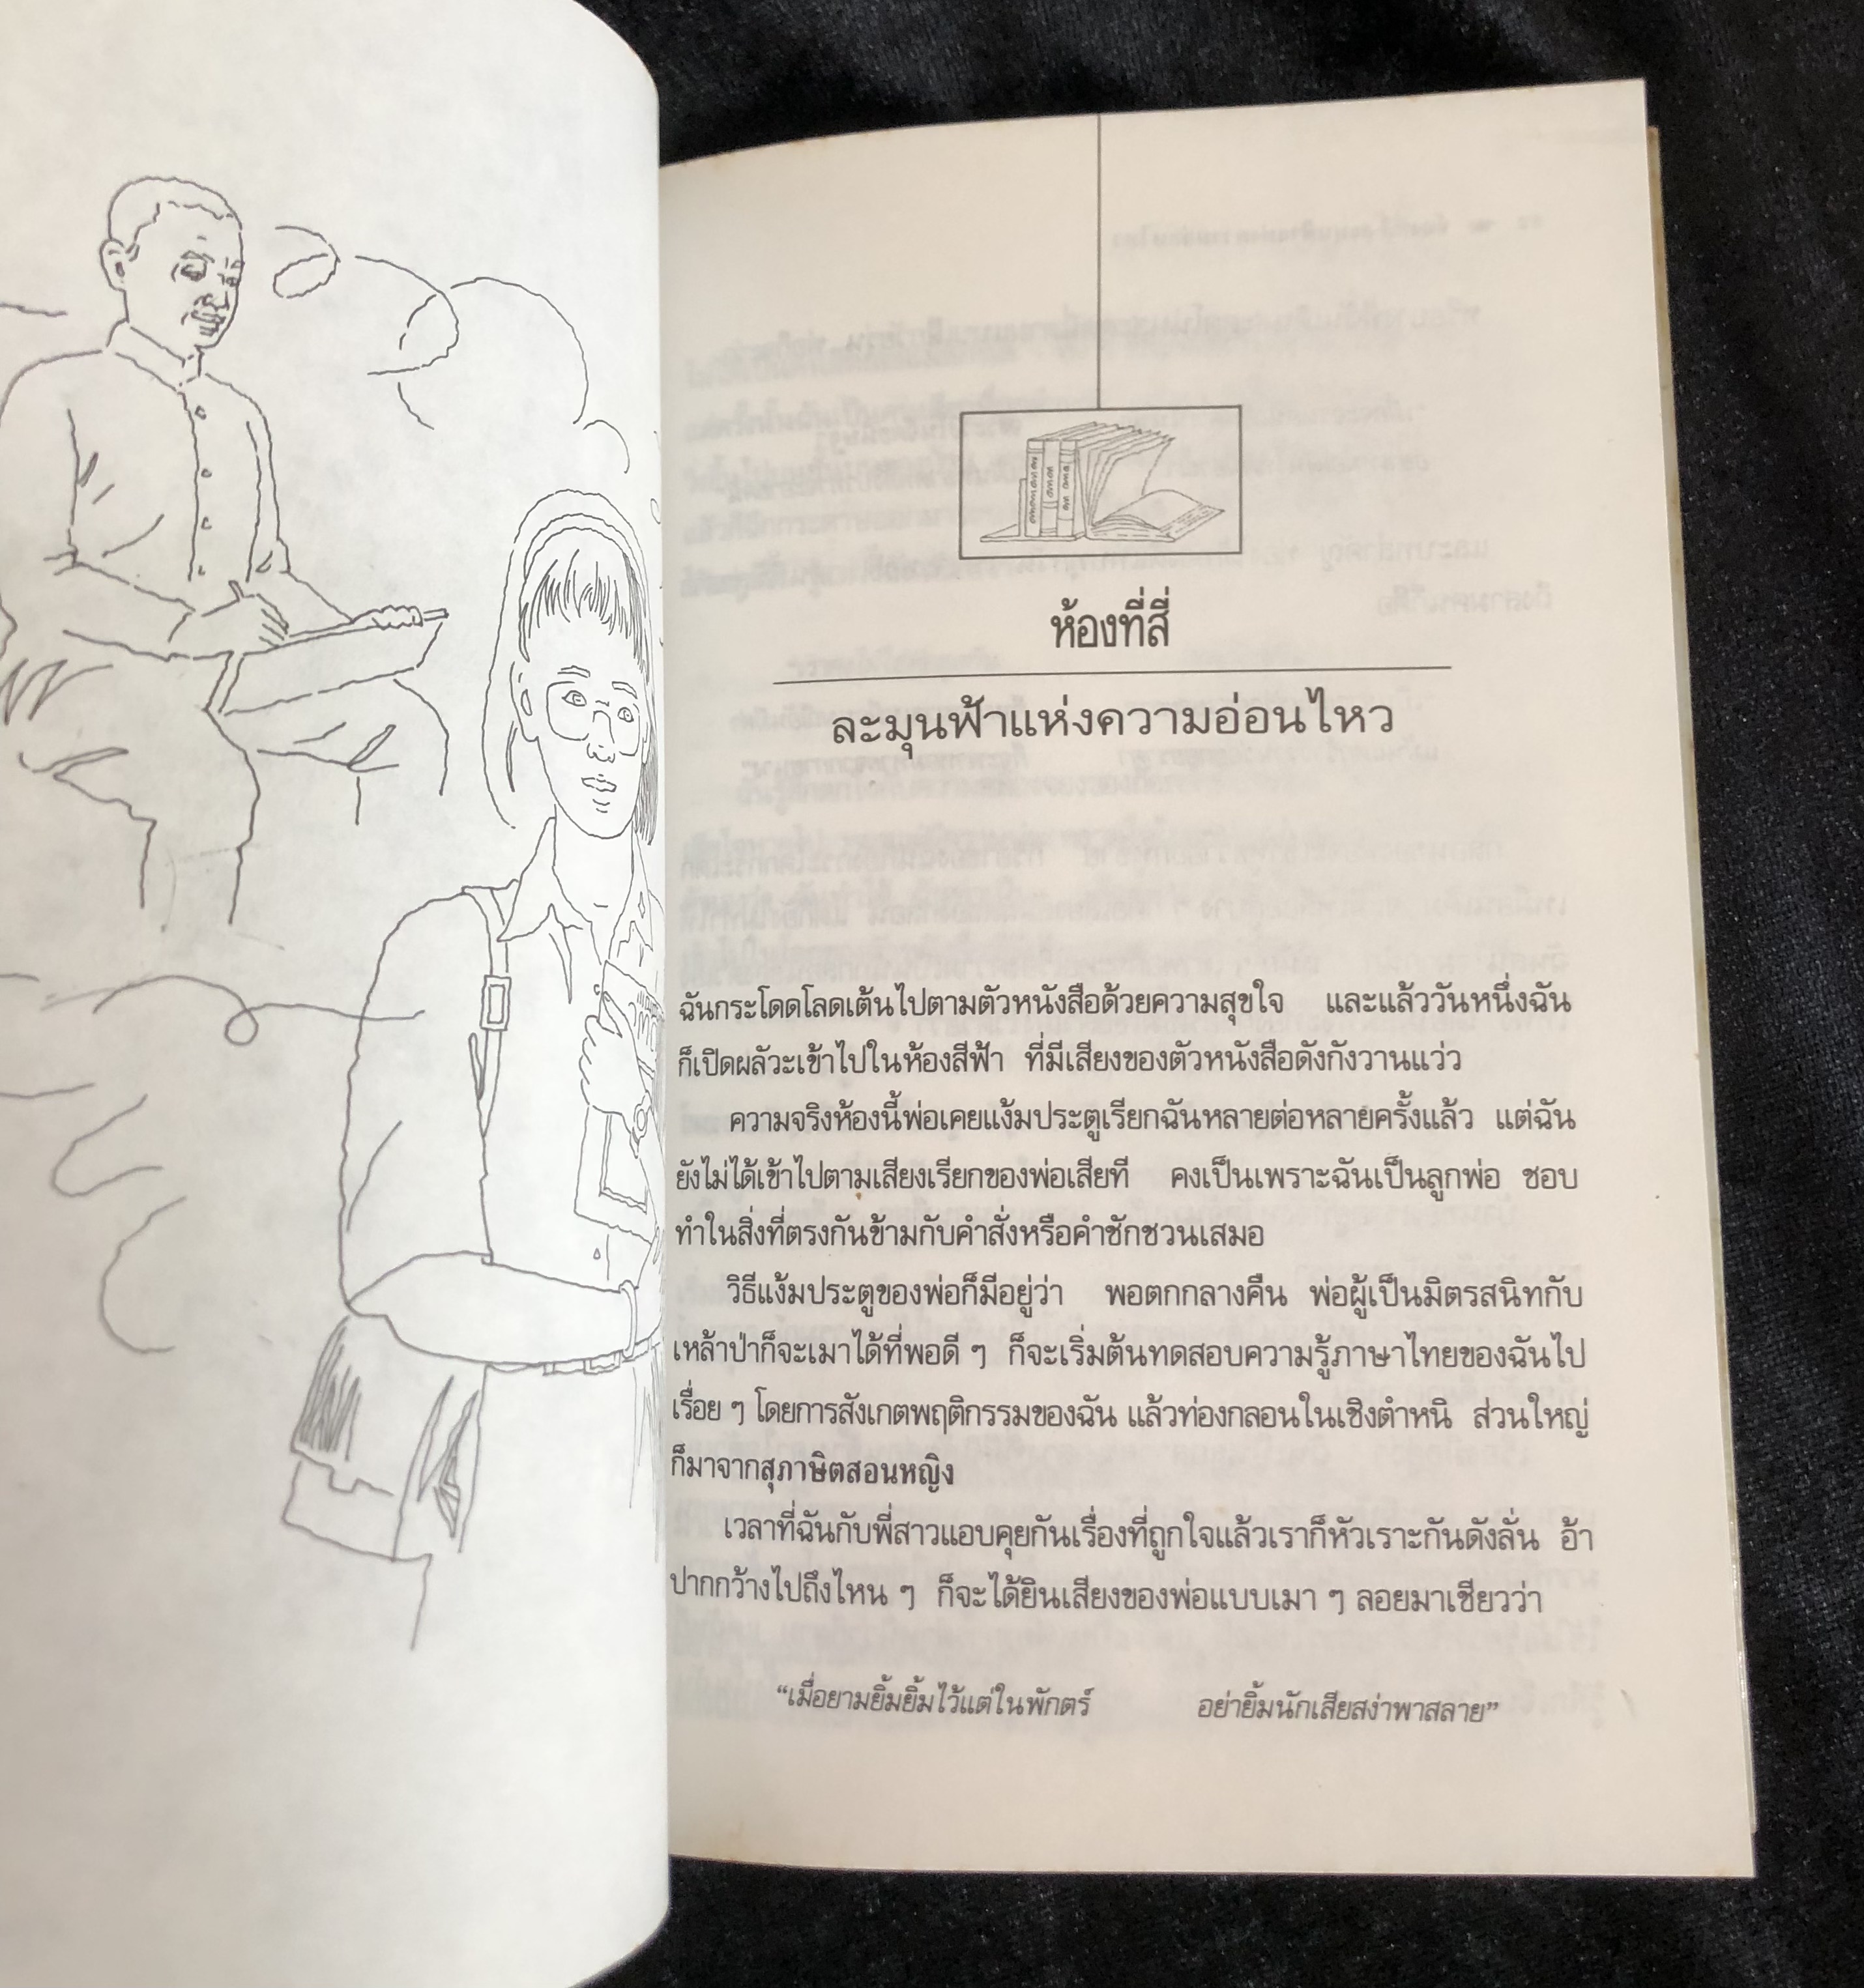 ห้องที่สี่
ละมุนฟ้าแห่งความอ่อนไหว
ฉันกระโดดโลดเต้นไปตามตัวหนังสือด้วยความสุขใจ และแล้ววันหนึ่งฉัน
ก็เปิดผลัวะเข้าไปในห้องสีฟ้า ที่มีเสียงของตัวหนังสือดังกังวานแว่ว
ความจริงห้องนี้พ่อเคยแง้มประตูเรียกฉันหลายต่อหลายครั้งแล้ว แต่ฉัน
ยังไม่ได้เข้าไปตามเสียงเรียกของพ่อเสียที คงเป็นเพราะฉันเป็นลูกพ่อ ชอบ
ทำในสิ่งที่ตรงกันข้ามกับคำสั่งหรือคำชักชวนเสมอ
วิธีแง้มประตูของพ่อก็มีอยู่ว่า พอตกกลางคืน พ่อผู้เป็นมิตรสนิทกับ
เหล้าป่าก็จะเมาได้ที่พอดี ๆ ก็จะเริ่มต้นทดสอบความรู้ภาษาไทยของฉันไป
เรื่อย ๆ โดยการสังเกตพฤติกรรมของฉัน แล้วท่องกลอนในเชิงตำหนิ ส่วนใหญ่
ก็มาจากสุภาษิตสอนหญิง
เวลาที่ฉันกับพี่สาวแอบคุยกันเรื่องที่ถูกใจแล้วเราก็หัวเราะกันดังลั่น อ้า
ปากกว้างไปถึงไหน ๆ ก็จะได้ยินเสียงของพ่อแบบเมา ๆ ลอยมาเชียวว่า
“เมื่อยามยิ้มยิ้มไว้แต่ในพักตร์ อย่ายิ้มนักเสียสง่าพาสลาย”